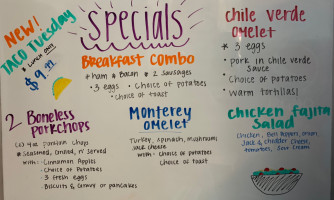 NEW!
TACO Tuesday
$9.99
Specials
Breakfast Combo
* Ham & Bacon * 2 Sausages
• 3 eggs • Choice of potatoes
• Choice of toast
chile verde
OMelet
* 3 eggs
• pork in chile verde
Sauce
• Choice of Potatoes
• Warm tortillas!
2 Boneless
Porkchops
* Seasoned, Grilled, n' Served
with: • Cinnamon Apples
• Choice of Potatoes
• 3 fresh eggs
Biscuits & Gravy or pancakes
Monterey
OMelet
Turkey, spinach, mushroom,
Jack cheese
with: • Choice of Potatoes
Choice of toast
Chicken fajita
Salad
Chicken, Bell Peppers, onion,
Jack & cheddar Cheese,
tomatoes, Sour Cream